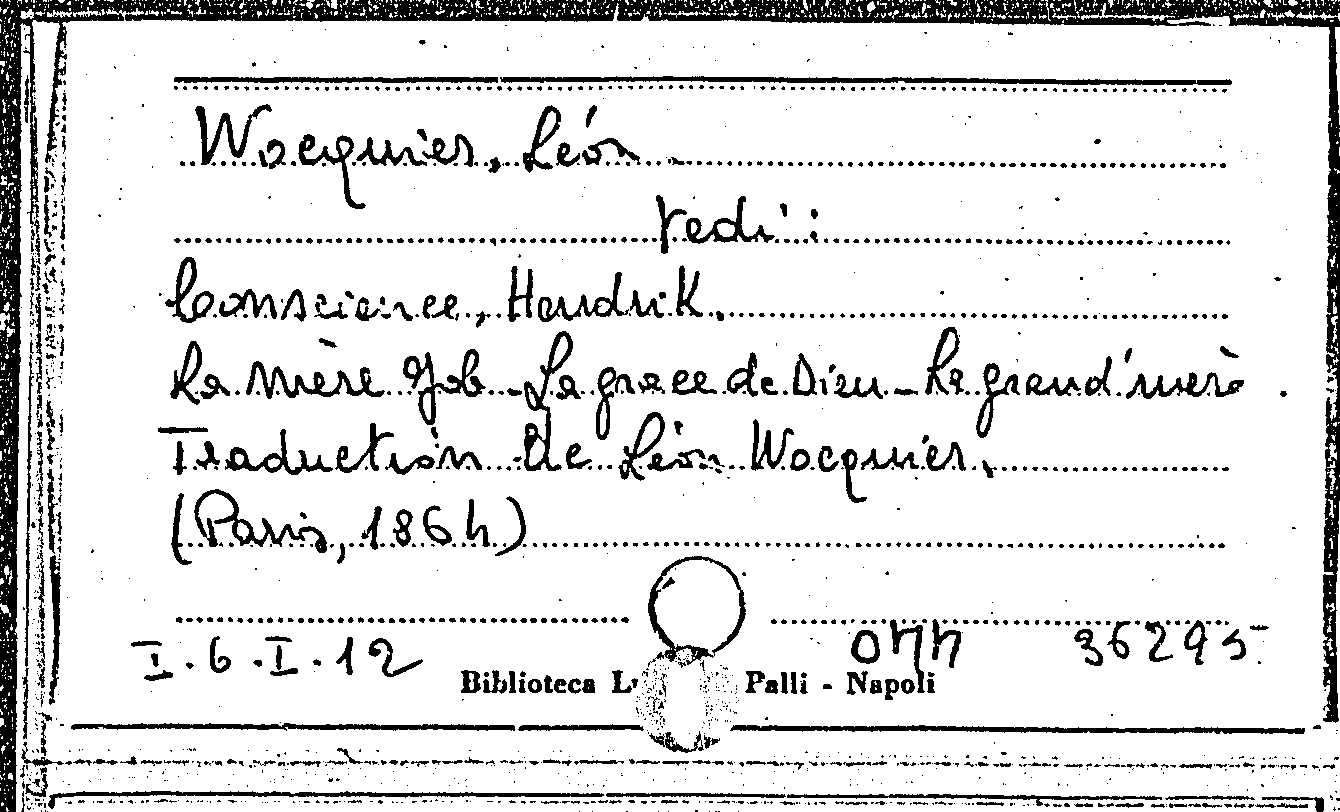 Wocquier, Léon
vedi:
Conscience, Hendrik.
La mère Job - La grace de Dieu - La grand'mère.
Traduction de Léon Wocquier.
(Paris, 1864)
I.6.I.12 36295
Biblioteca Palli - Napoli